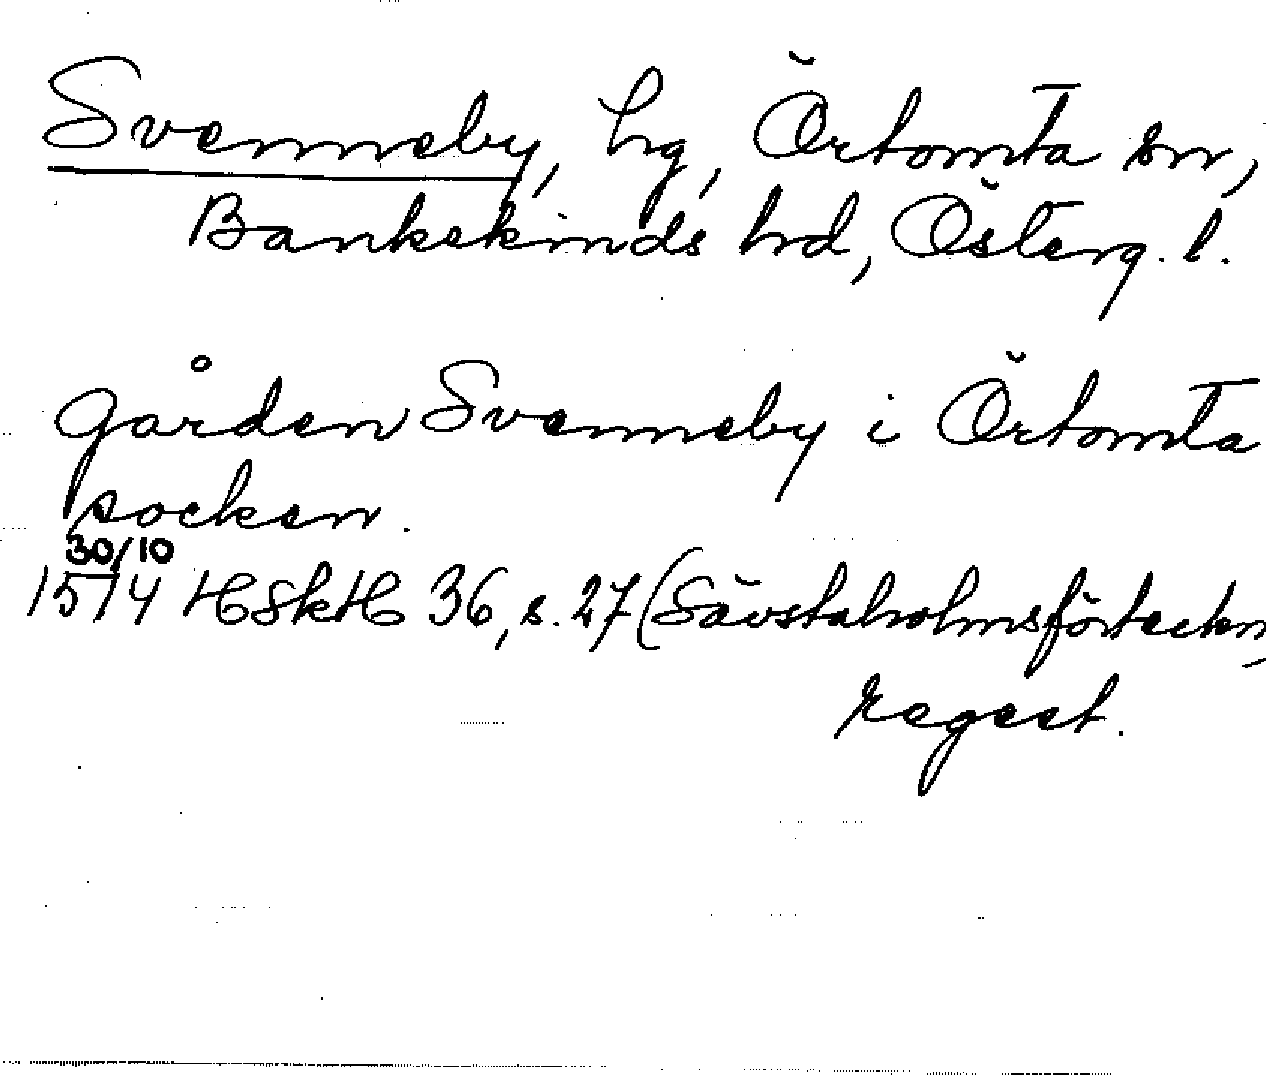 Svenneby, hg, Örtomta sn,
Bankekinds hd, Österg. l.
gården Svenneby i Örtomta
socken.
30/10
1574 HSkH 36, s. 27 (Sävstaholmsförteckn,
regest.